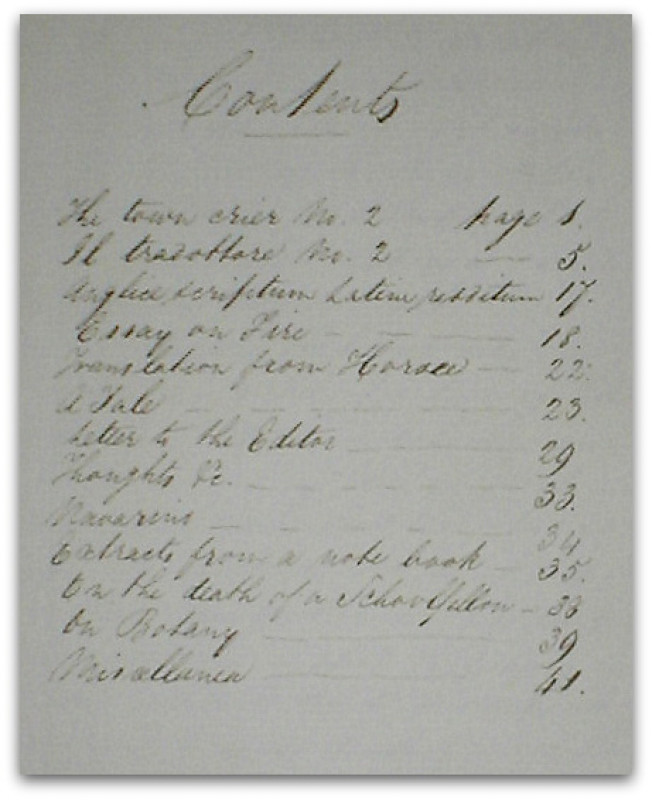 Contents
The town crier No. 2 page 1.
Il tradottore No. 2 5.
Anglice scriptum Latine redditum 17.
Essay on Fire 18.
Translation from Horace 22.
A Tale 23.
Letter to the Editor 29
Thoughts &c. 33.
Navarino 34
Extracts from a note book 35.
On the death of a Schoolfellow 38
On Botany 39
Miscellanea 41.